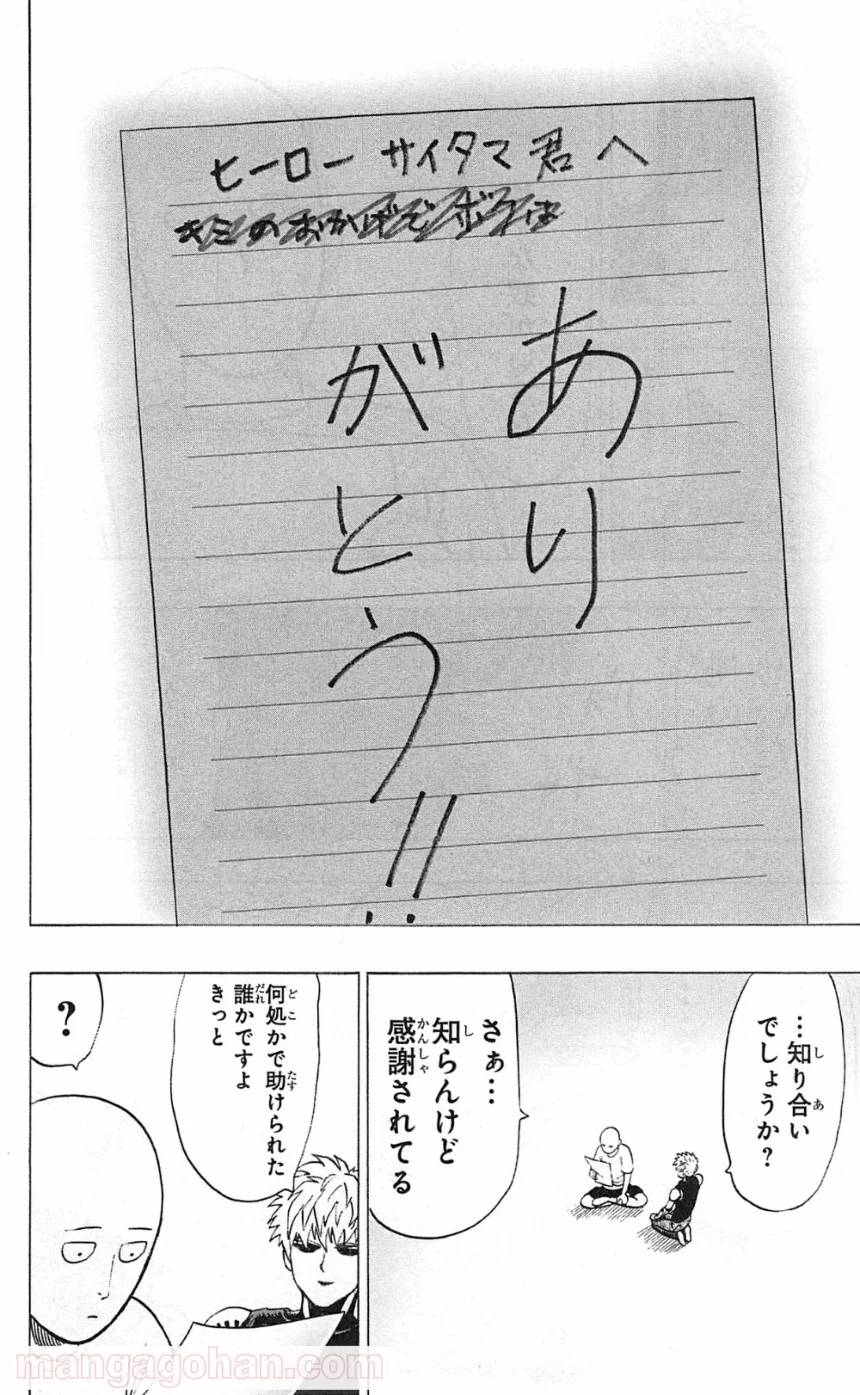 ヒーロー サイタマ君へ
キミのおかげでボクは
あり
がとう!!
…知り合い
でしょうか?
さぁ…
知らんけど
感謝されてる
何処かで助けられた
誰かですよ
きっと
?
mangagohan.com